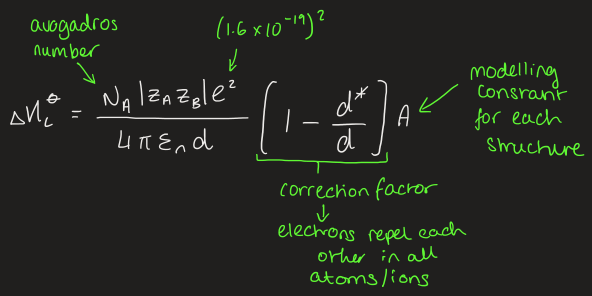 avogadros
number
(1.6 × 10⁻¹⁹)²
ΔH_L^⊖ = N_A |z_A z_B| e² / 4 π ε_n d [1 − d*/d] A
modelling
constant
for each
structure
correction factor
↓
electrons repel each
other in all
atoms/ions